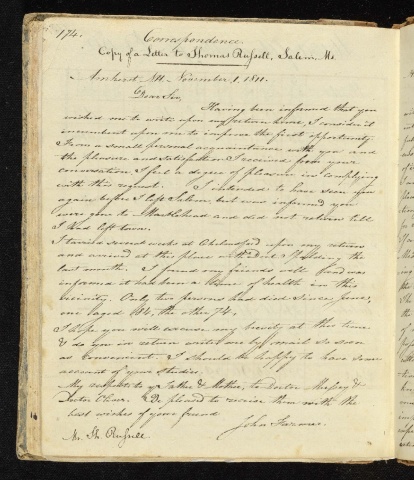 174.
Correspondence
Copy of a Letter to Thomas Russell, Salem, Ms.
Amherst NH. November 1, 1811.
Dear Sir,
Having been informed that you
wished me to write upon my return home, I consider it
incumbent upon me to improve the first opportunity
From a small personal acquaintance with you and
the pleasure and satisfaction I received from your
conversation I feel a degree of pleasure in complying
with this request. I intended to have seen you
again before I left Salem, but was informed you
were gone to Marblehead and did not return till
I had left town.
I tarried several weeks at Chelmsford upon my return
and arrived at this place on the during the
last month. I found my friends well and was
informed it has been a time of health in this
vicinity. Only two persons had died since June,
one aged 84, the other 74.
I hope you will excuse my brevity at this time
& do you in return write me by mail as soon
as convenient. I should be happy to have some
account of your studies.
My respects to yr Father & Mother, to Doctor &
Doctor Oliver. Be pleased to receive them with the
best wishes of your friend
John Farmer.
Mr. Th. Russell